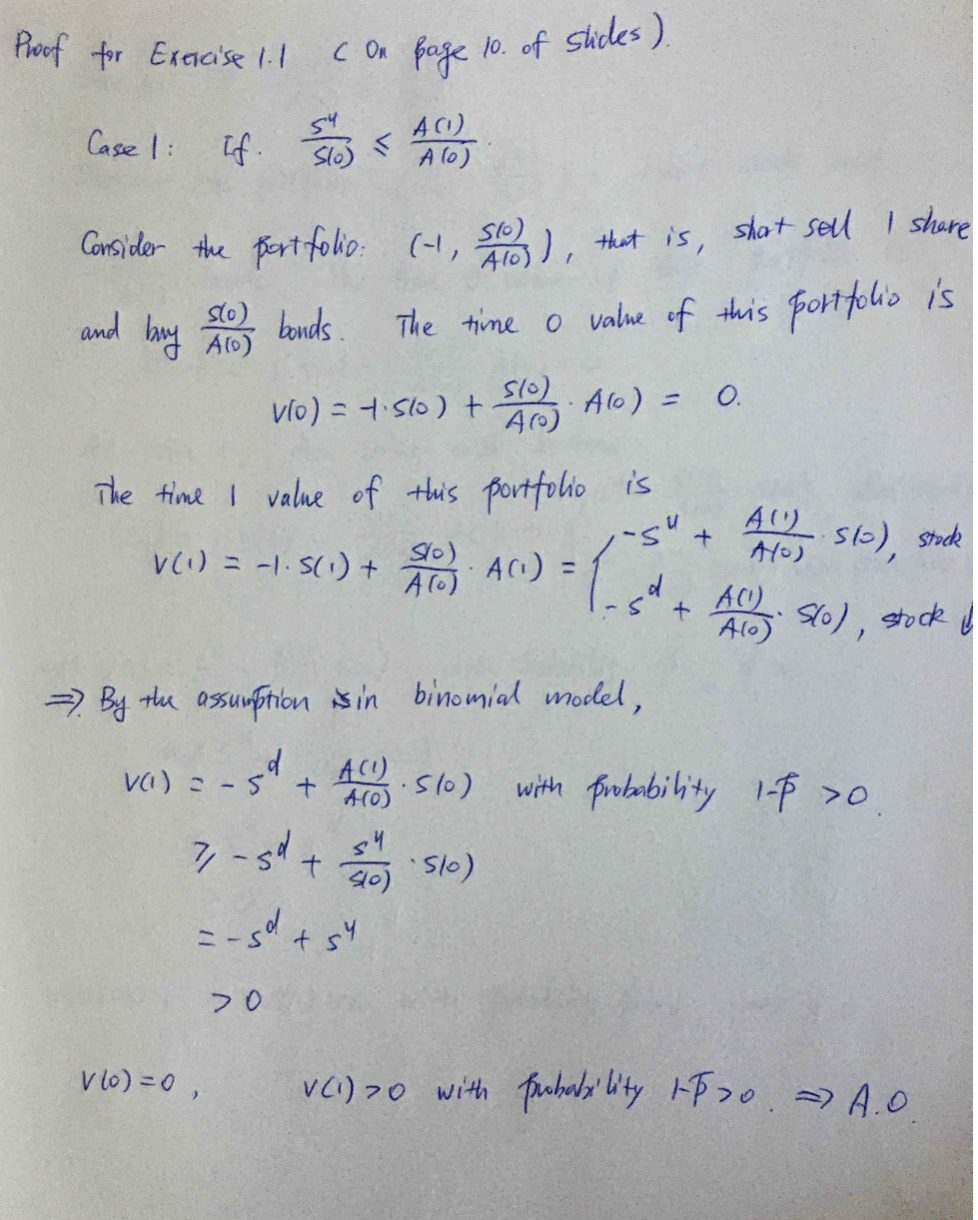 Proof for Exercise 1.1 (On page 10. of slides).
Case 1: If. S^u/S(0) ≤ A(1)/A(0).
Consider the portfolio: (-1, S(0)/A(0)), that is, short sell 1 share
and buy S(0)/A(0) bonds. The time 0 value of this portfolio is
V(0) = -1·S(0) + S(0)/A(0) · A(0) = 0.
The time 1 value of this portfolio is
V(1) = -1·S(1) + S(0)/A(0) · A(1) = { -S^u + A(1)/A(0) · S(0), stock
-S^d + A(1)/A(0) · S(0), stock ↓
⇒ By the assumption in binomial model,
V(1) = -S^d + A(1)/A(0) · S(0) with probability 1-p > 0.
≥ -S^d + S^u/S(0) · S(0)
= -S^d + S^u
> 0
V(0) = 0, V(1) > 0 with probability 1-p > 0. ⇒ A.O.